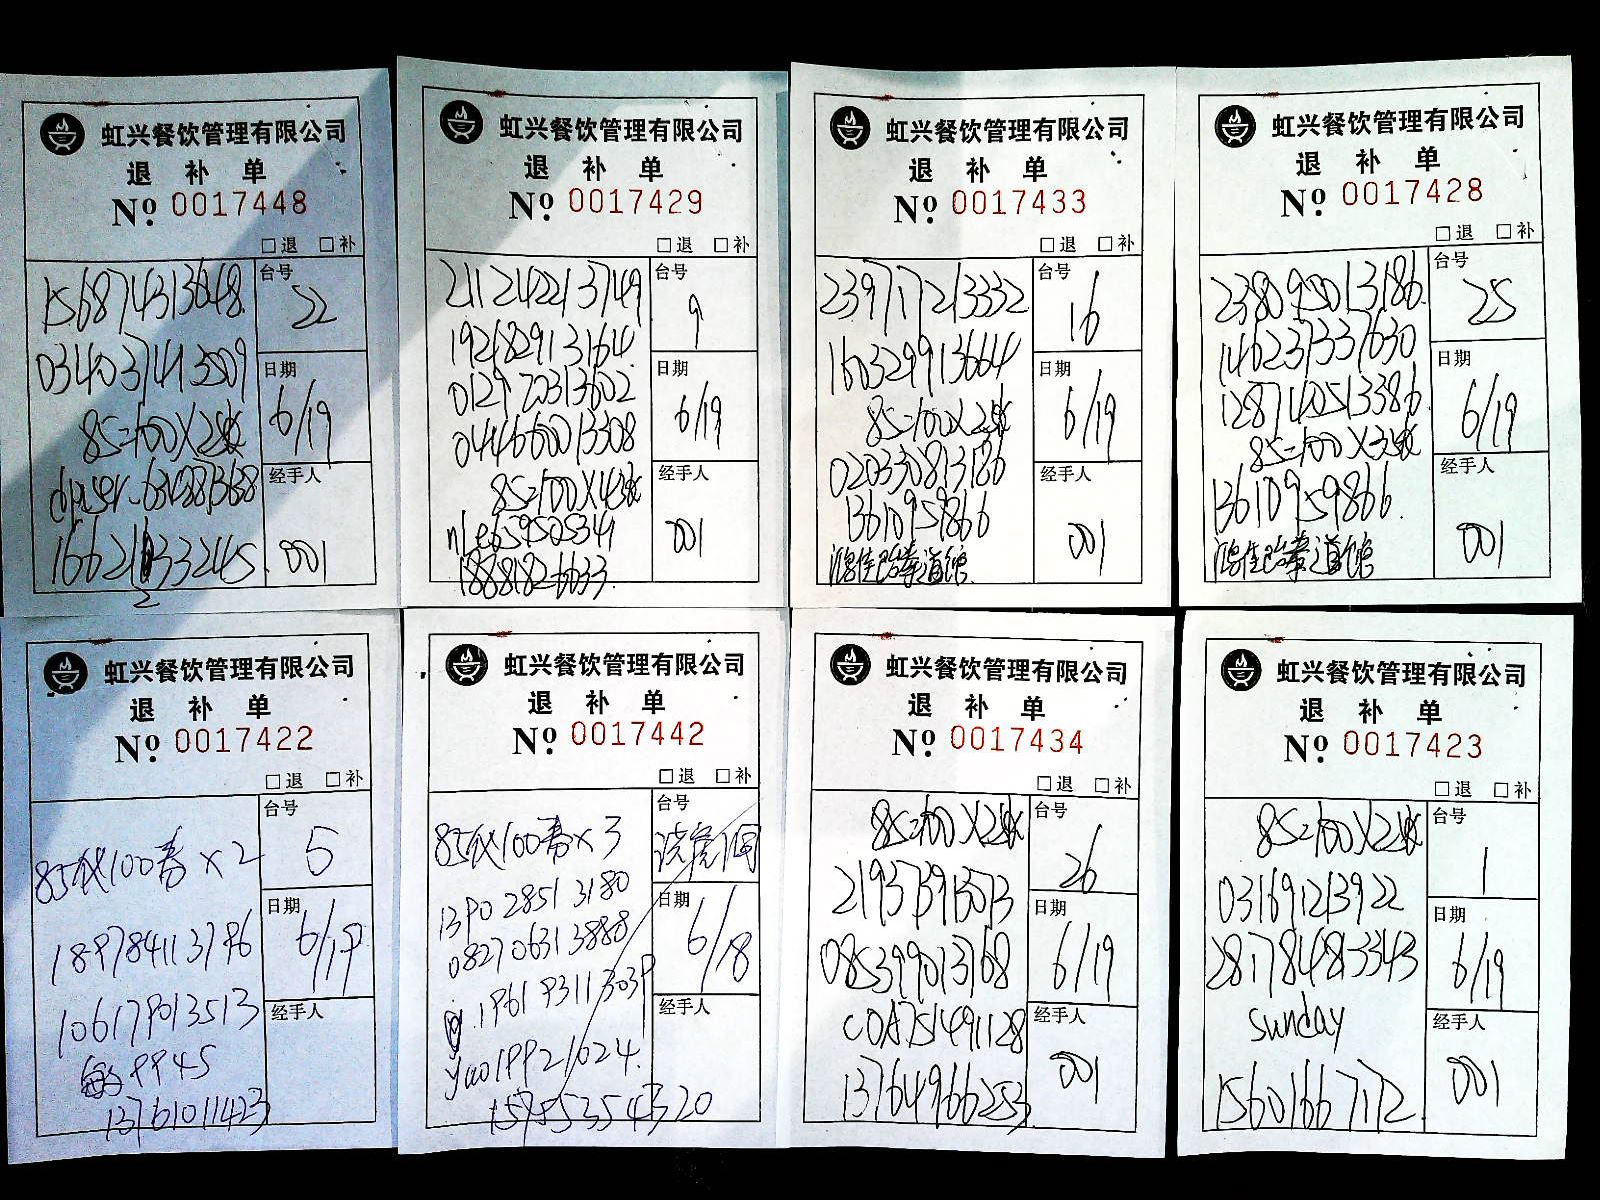 虹兴餐饮管理有限公司
退 补 单
Nº 0017448
□退 □补
台号
22
日期
6/19
经手人
001
156874313648
034037413509
85=100X2张
虹兴餐饮管理有限公司
退 补 单
Nº 0017429
□退 □补
台号
9
日期
6/19
经手人
001
211242213749
192682913164
012970313602
044660013308
85=100X4张
虹兴餐饮管理有限公司
退 补 单
Nº 0017433
□退 □补
台号
16
日期
6/19
经手人
001
239717213332
160329913664
85=100X2张
020330813186
13610959866
虹兴餐饮管理有限公司
退 补 单
Nº 0017428
□退 □补
台号
25
日期
6/19
经手人
001
238095013186
146231337630
128740513386
85=100X3张
13610959866
虹兴餐饮管理有限公司
退 补 单
Nº 0017422
□退 □补
台号
5
日期
6/19
经手人
85代100券x2
189784113796
106179013513
9945
13761011423
虹兴餐饮管理有限公司
退 补 单
Nº 0017442
□退 □补
台号
日期
6/18
经手人
85代100券x3
139028513180
082706313888
196193113039
yuo19921024.
15755354320
虹兴餐饮管理有限公司
退 补 单
Nº 0017434
□退 □补
台号
26
日期
6/19
经手人
001
85=100X2张
219373913073
085399013768
COA751491128
13764966253
虹兴餐饮管理有限公司
退 补 单
Nº 0017423
□退 □补
台号
1
日期
6/19
经手人
001
85=100X2张
031691213922
281784483343
sunday
15601667172